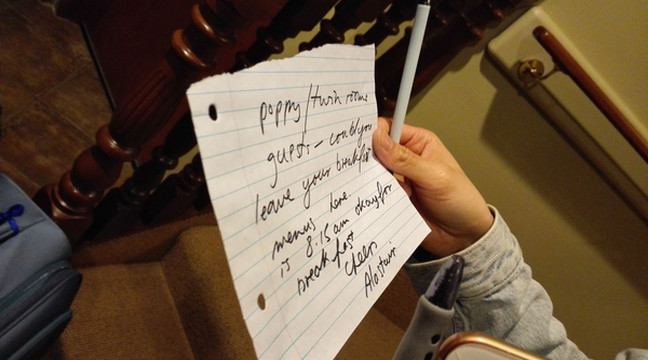 poppy/twin room
guests - could you
leave your breakfast
menus here
is 8.15 am okay for
breakfast
cheers
Alastair